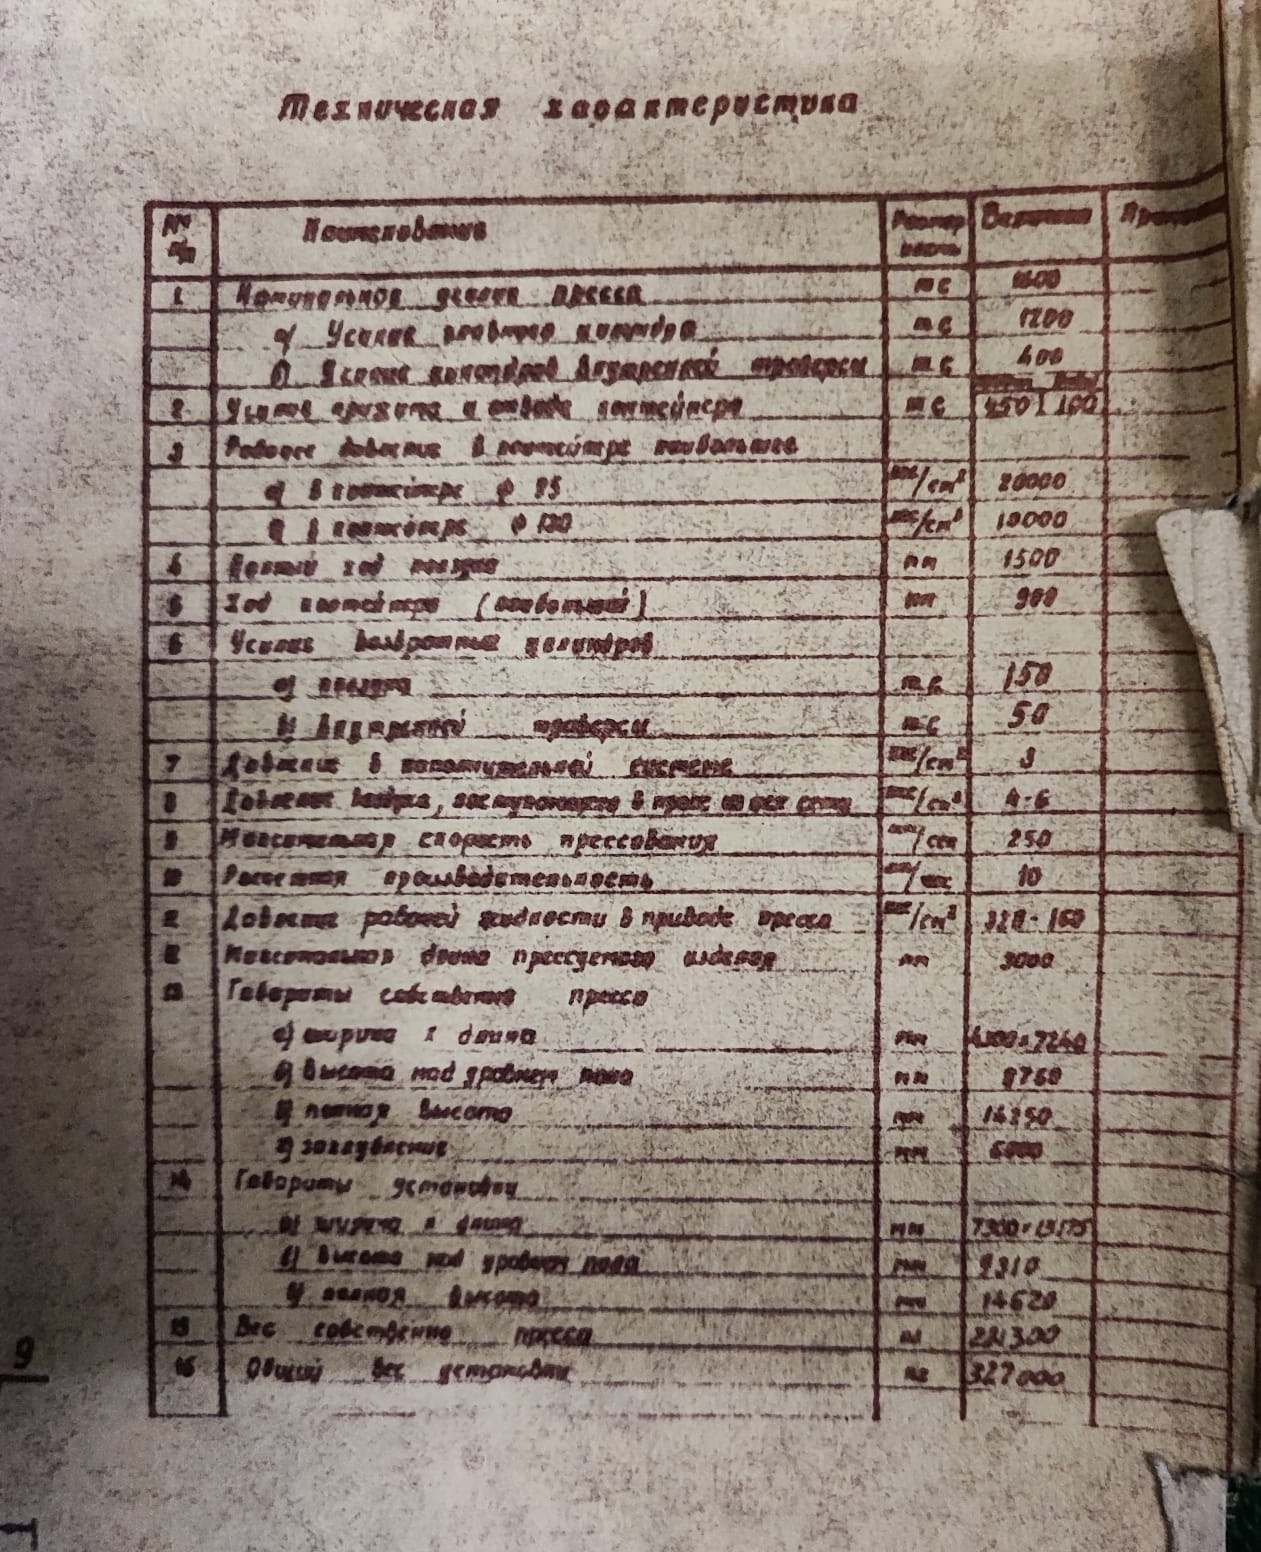 Техническая характеристика
№№ п/п Наименование Размерность Величина
1 Номинальное усилие пресса тс 1600
а) Усилие главного цилиндра тс 1200
б) Усилие цилиндров внутренней траверсы тс 400
2 Усилие прижима и отвода контейнера тс 450 160
3 Рабочее давление в контейнере наибольшее
а) в контейнере ф 95 кгс/см² 20000
б) в контейнере ф кгс/см² 10000
4 Полный ход ползуна мм 1500
5 Ход контейнера (наибольший) мм 900
6 Усилие возвратных цилиндров
а) ползуна тс 150
б) Внутренней траверсы тс 50
7 Давление в наполнительной системе кгс/см² 3
8 Давление воздуха, поступающего в пресс из сети кгс/см² 4-6
9 Максимальная скорость прессования мм/сек 250
10 Расчетная производительность /час 10
11 Давление рабочей жидкости в приводе пресса кгс/см² 320-160
12 Максимальная длина прессуемого изделия мм 3000
13 Габариты собственно пресса
а) ширина х длина мм
б) Высота над уровнем пола мм
в) полная высота мм 14250
г) заглубление мм
14 Габариты установки
а) ширина х длина мм
б) Высота над уровнем пола мм
в) полная высота мм 14620
15 Вес собственно пресса кг
16 Общий вес установки кг 327000
9
1